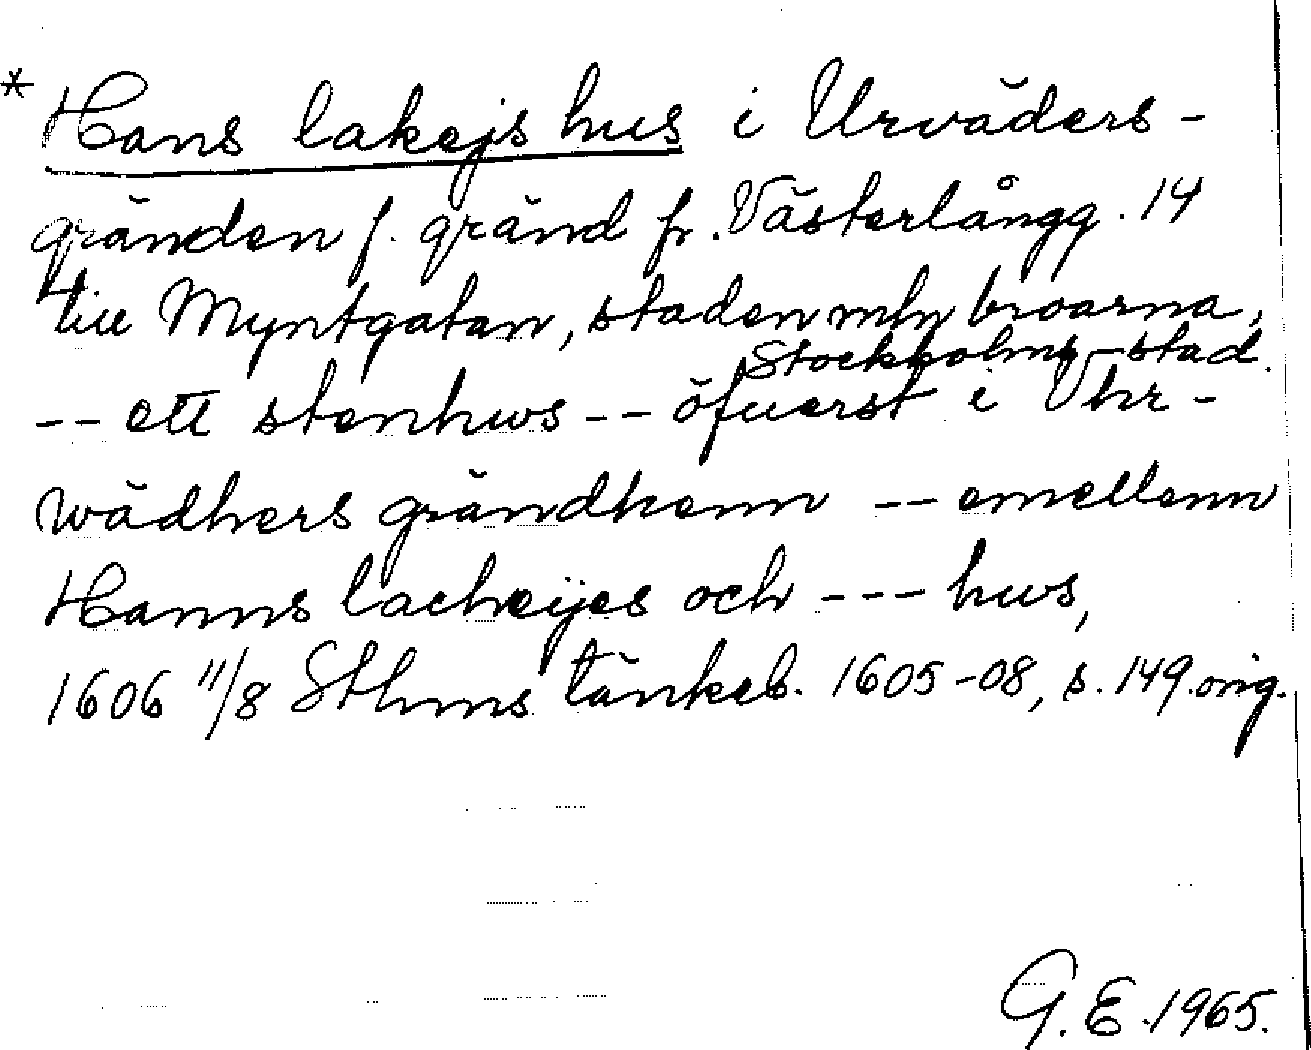 * Hans lakejs hus i Urväders-
gränden f. gränd fr. Västerlångg. 14
till Myntgatan, staden mln broarna,
Stockholms stad.
-- ett stenhws -- öfuerst i Vhr-
wädhers grändhenn -- emellenn
Hanns lacheÿes och --- hws,
1606 11/8 Sthms tänkeb. 1605-08, s. 149 orig.
G. E. 1965.